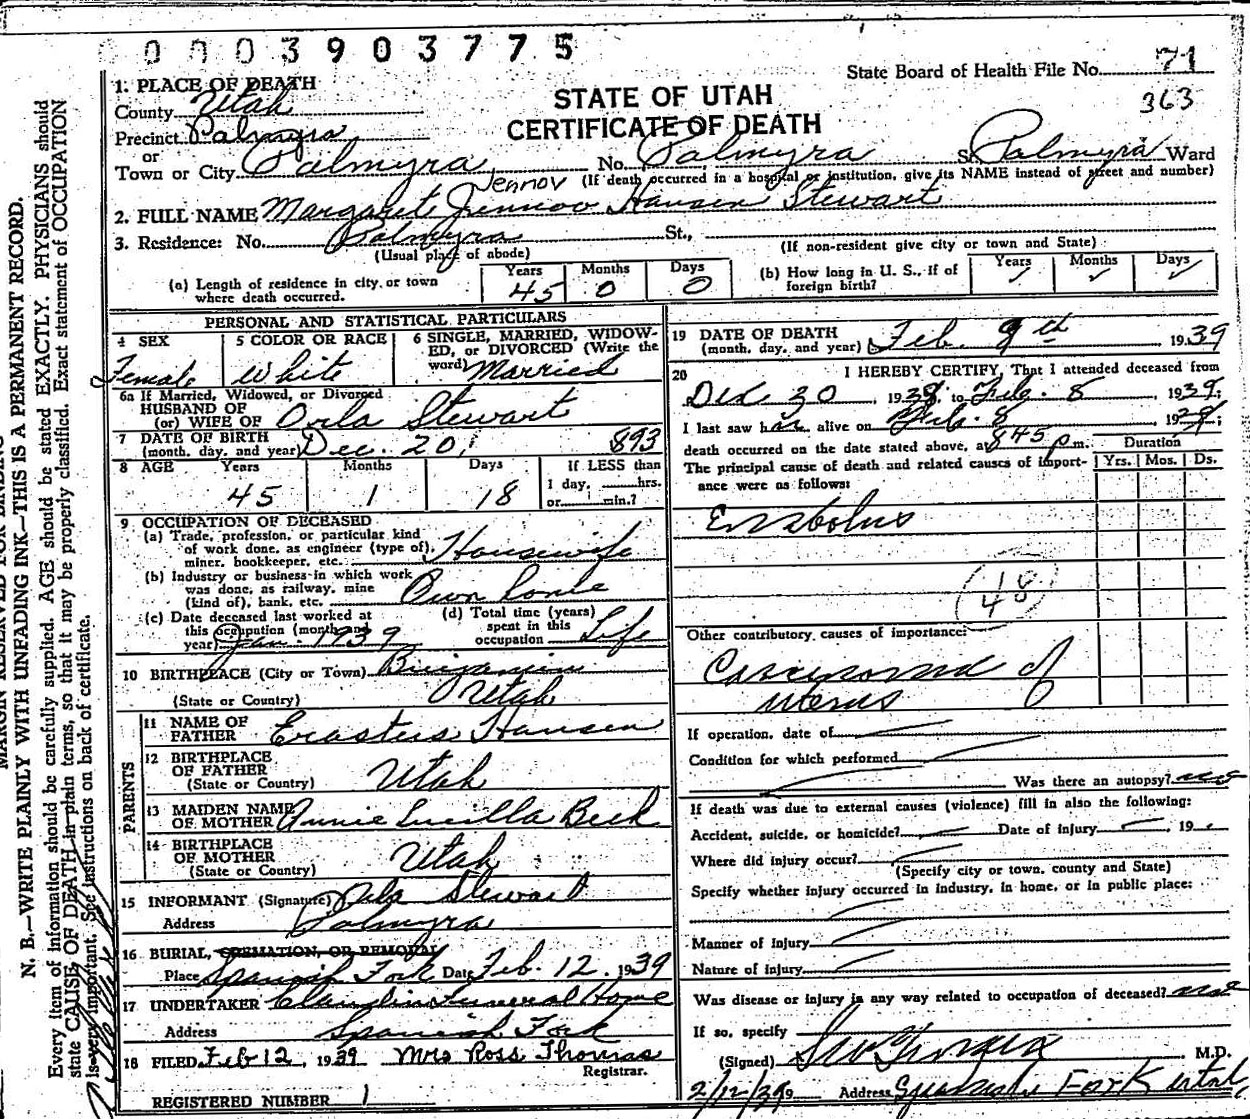 0003903775
State Board of Health File No. 71
363
STATE OF UTAH
CERTIFICATE OF DEATH
1. PLACE OF DEATH
County Utah
Precinct Palmyra
or
Town or City Palmyra No. Palmyra St. Palmyra Ward
(If death occurred in a hospital or institution, give its NAME instead of street and number)
Jennov
2. FULL NAME Margaret Hansen Stewart
3. Residence: No. Palmyra St.,
(Usual place of abode) (If non-resident give city or town and State)
(a) Length of residence in city or town where death occurred. Years 45 Months 0 Days 0
(b) How long in U. S., if of foreign birth? Years ✓ Months ✓ Days ✓
PERSONAL AND STATISTICAL PARTICULARS
4 SEX Female
5 COLOR OR RACE White
6 SINGLE, MARRIED, WIDOWED, or DIVORCED (Write the word) Married
6a If Married, Widowed, or Divorced
HUSBAND OF
(or) WIFE OF Orla Stewart
7 DATE OF BIRTH
(month, day, and year) Dec. 20, 893
8 AGE Years 45 Months 1 Days 18 If LESS than 1 day, hrs. or min.?
9 OCCUPATION OF DECEASED
(a) Trade, profession, or particular kind of work done, as engineer (type of), miner, bookkeeper, etc. Housewife
(b) Industry or business in which work was done, as railway, mine (kind of), bank, etc. Own home
(c) Date deceased last worked at this occupation (month and year) Jan. 1939
(d) Total time (years) spent in this occupation Life
10 BIRTHPLACE (City or Town) Benjamin
(State or Country) Utah
PARENTS
11 NAME OF FATHER Erastus Hansen
12 BIRTHPLACE OF FATHER
(State or Country) Utah
13 MAIDEN NAME OF MOTHER Annie Lucilla Beck
14 BIRTHPLACE OF MOTHER
(State or Country) Utah
15 INFORMANT (Signature) Orla Stewart
Address Palmyra
16 BURIAL, CREMATION, OR REMOVAL
Place Spanish Fork Date Feb. 12, 1939
17 UNDERTAKER Claudin Funeral Home
Address Spanish Fork
18 FILED Feb 12, 1939 Mrs Ross Thomas
Registrar.
REGISTERED NUMBER 1
19 DATE OF DEATH
(month, day, and year) Feb. 9th, 1939
20 I HEREBY CERTIFY, That I attended deceased from
Dec 30 1938, to Feb. 8 1939;
I last saw her alive on Feb. 8 1939;
death occurred on the date stated above, at 845 p m.
Duration
Yrs. Mos. Ds.
The principal cause of death and related causes of importance were as follows:
Embolus
48
Other contributory causes of importance:
Carcinoma of
uterus
If operation, date of
Condition for which performed
Was there an autopsy? no
If death was due to external causes (violence) fill in also the following:
Accident, suicide, or homicide? Date of injury 19
Where did injury occur?
(Specify city or town, county and State)
Specify whether injury occurred in industry, in home, or in public place:
Manner of Injury
Nature of Injury
Was disease or injury in any way related to occupation of deceased? no
If so, specify
(Signed) M.D.
2/12/39 Address Spanish Fork Utah
MARGIN RESERVED FOR BINDING
N. B.—WRITE PLAINLY WITH UNFADING INK—THIS IS A PERMANENT RECORD.
Every item of information should be carefully supplied. AGE should be stated EXACTLY. PHYSICIANS should
state CAUSE OF DEATH in plain terms, so that it may be properly classified. Exact statement of OCCUPATION
is very important. See instructions on back of certificate.